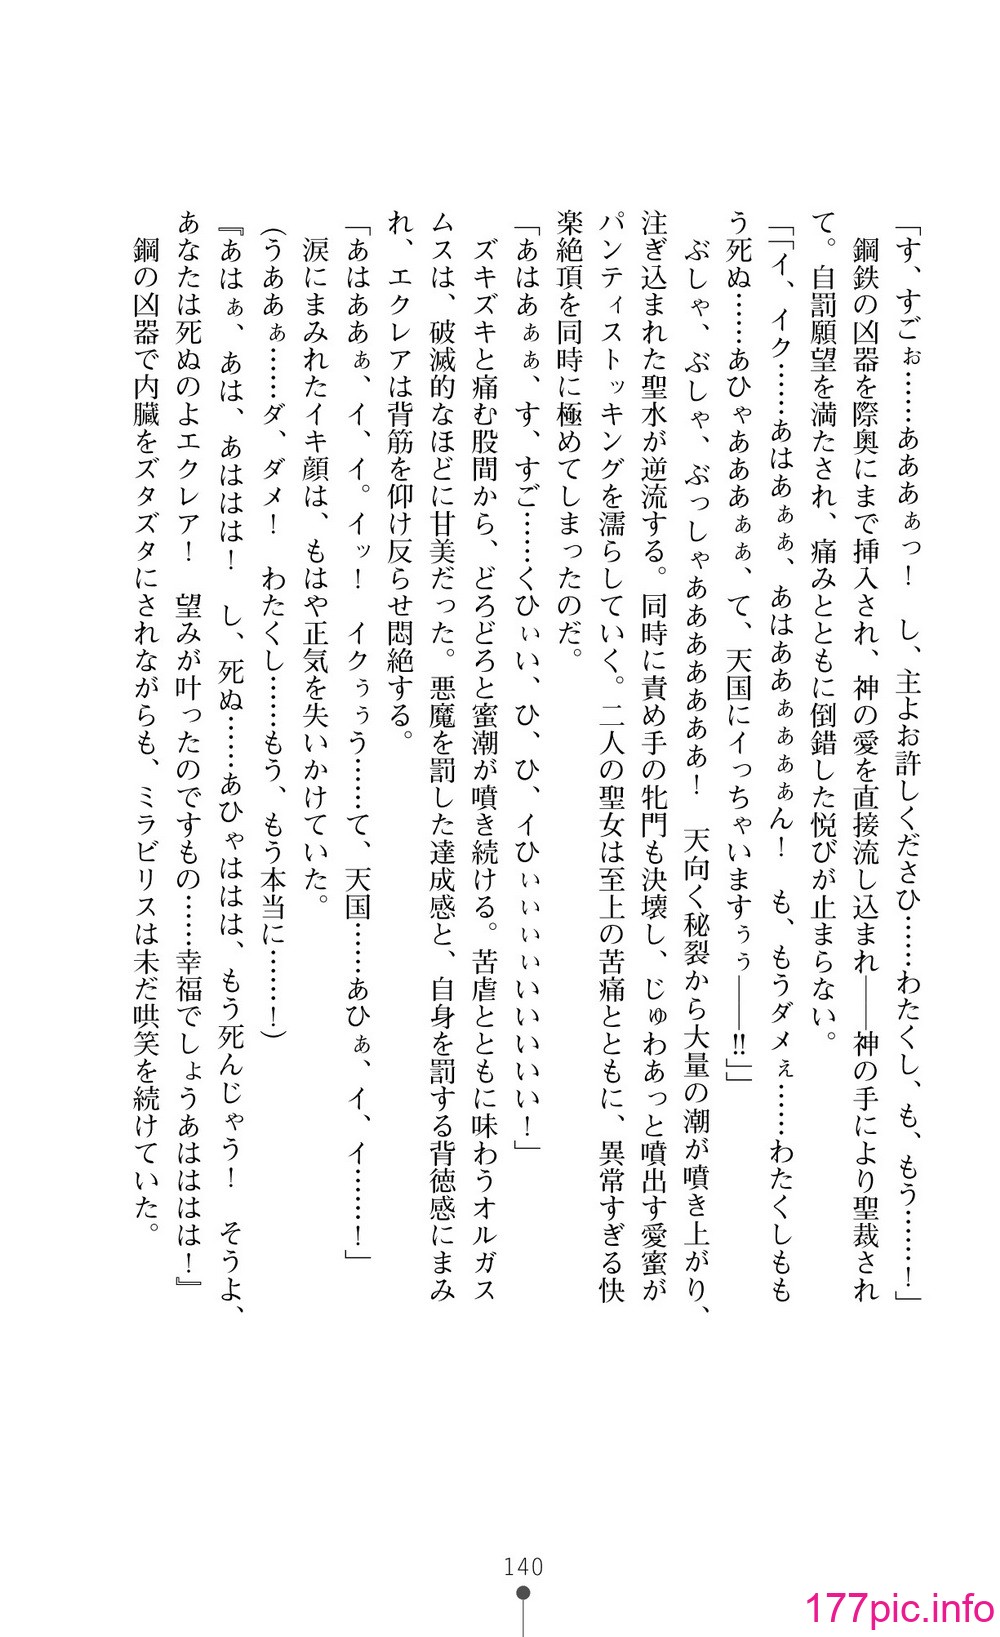 「す、すごぉ……あああぁっ！　し、主よお許しくださひ……わたくし、も、もう……！」
　鋼鉄の凶器を際奥にまで挿入され、神の愛を直接流し込まれ――神の手により聖裁され
て。自罰願望を満たされ、痛みとともに倒錯した悦びが止まらない。
「「イ、イク……あはあぁぁ、あはああぁぁぁぁん！　も、もうダメぇ……わたくしもも
う死ぬ……あひゃあああぁぁ、て、天国にイっちゃいますぅぅ――‼」」
　ぶしゃ、ぶしゃ、ぶっしゃああああああああ！　天向く秘裂から大量の潮が噴き上がり、
注ぎ込まれた聖水が逆流する。同時に責め手の牝門も決壊し、じゅわあっと噴出す愛蜜が
パンティストッキングを濡らしていく。二人の聖女は至上の苦痛とともに、異常すぎる快
楽絶頂を同時に極めてしまったのだ。
「あはあぁぁ、す、すご……くひぃい、ひ、ひ、イひぃぃぃぃいいいいい！」
　ズキズキと痛む股間から、どろどろと蜜潮が噴き続ける。苦虐とともに味わうオルガス
ムスは、破滅的なほどに甘美だった。悪魔を罰した達成感と、自身を罰する背徳感にまみ
れ、エクレアは背筋を仰け反らせ悶絶する。
「あはああぁ、イ、イ。イッ！　イクぅぅう……て、天国……あひぁ、イ、イ……！」
　涙にまみれたイキ顔は、もはや正気を失いかけていた。
（うああぁ……ダ、ダメ！　わたくし……もう、もう本当に……！）
『あはぁ、あは、あははは！　し、死ぬ……あひゃははは、もう死んじゃう！　そうよ、
あなたは死ぬのよエクレア！　望みが叶ったのですもの……幸福でしょうあはははは！』
　鋼の凶器で内臓をズタズタにされながらも、ミラビリスは未だ哄笑を続けていた。
140
177pic.info